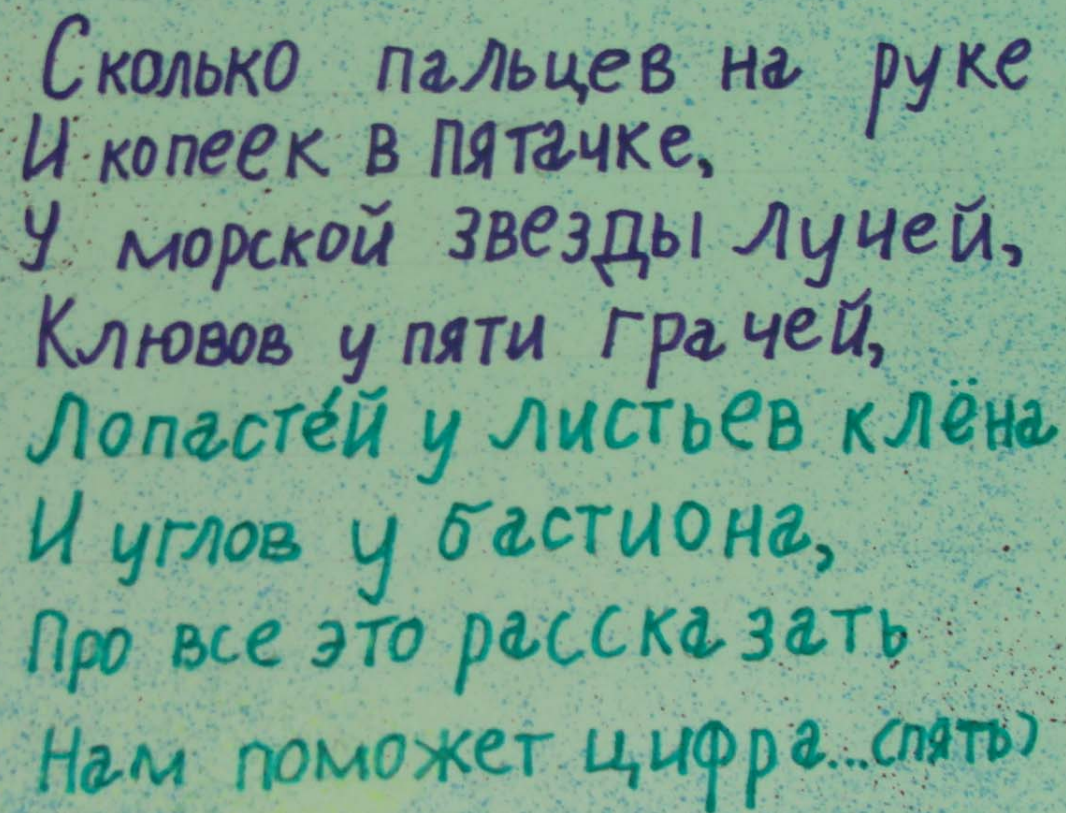 Сколько пальцев на руке
И копеек в пятачке,
У морской звезды лучей,
Клювов у пяти грачей,
Лопастéй у листьев клёна
И углов у бастиона,
Про все это рассказать
Нам поможет цифра...(пять)